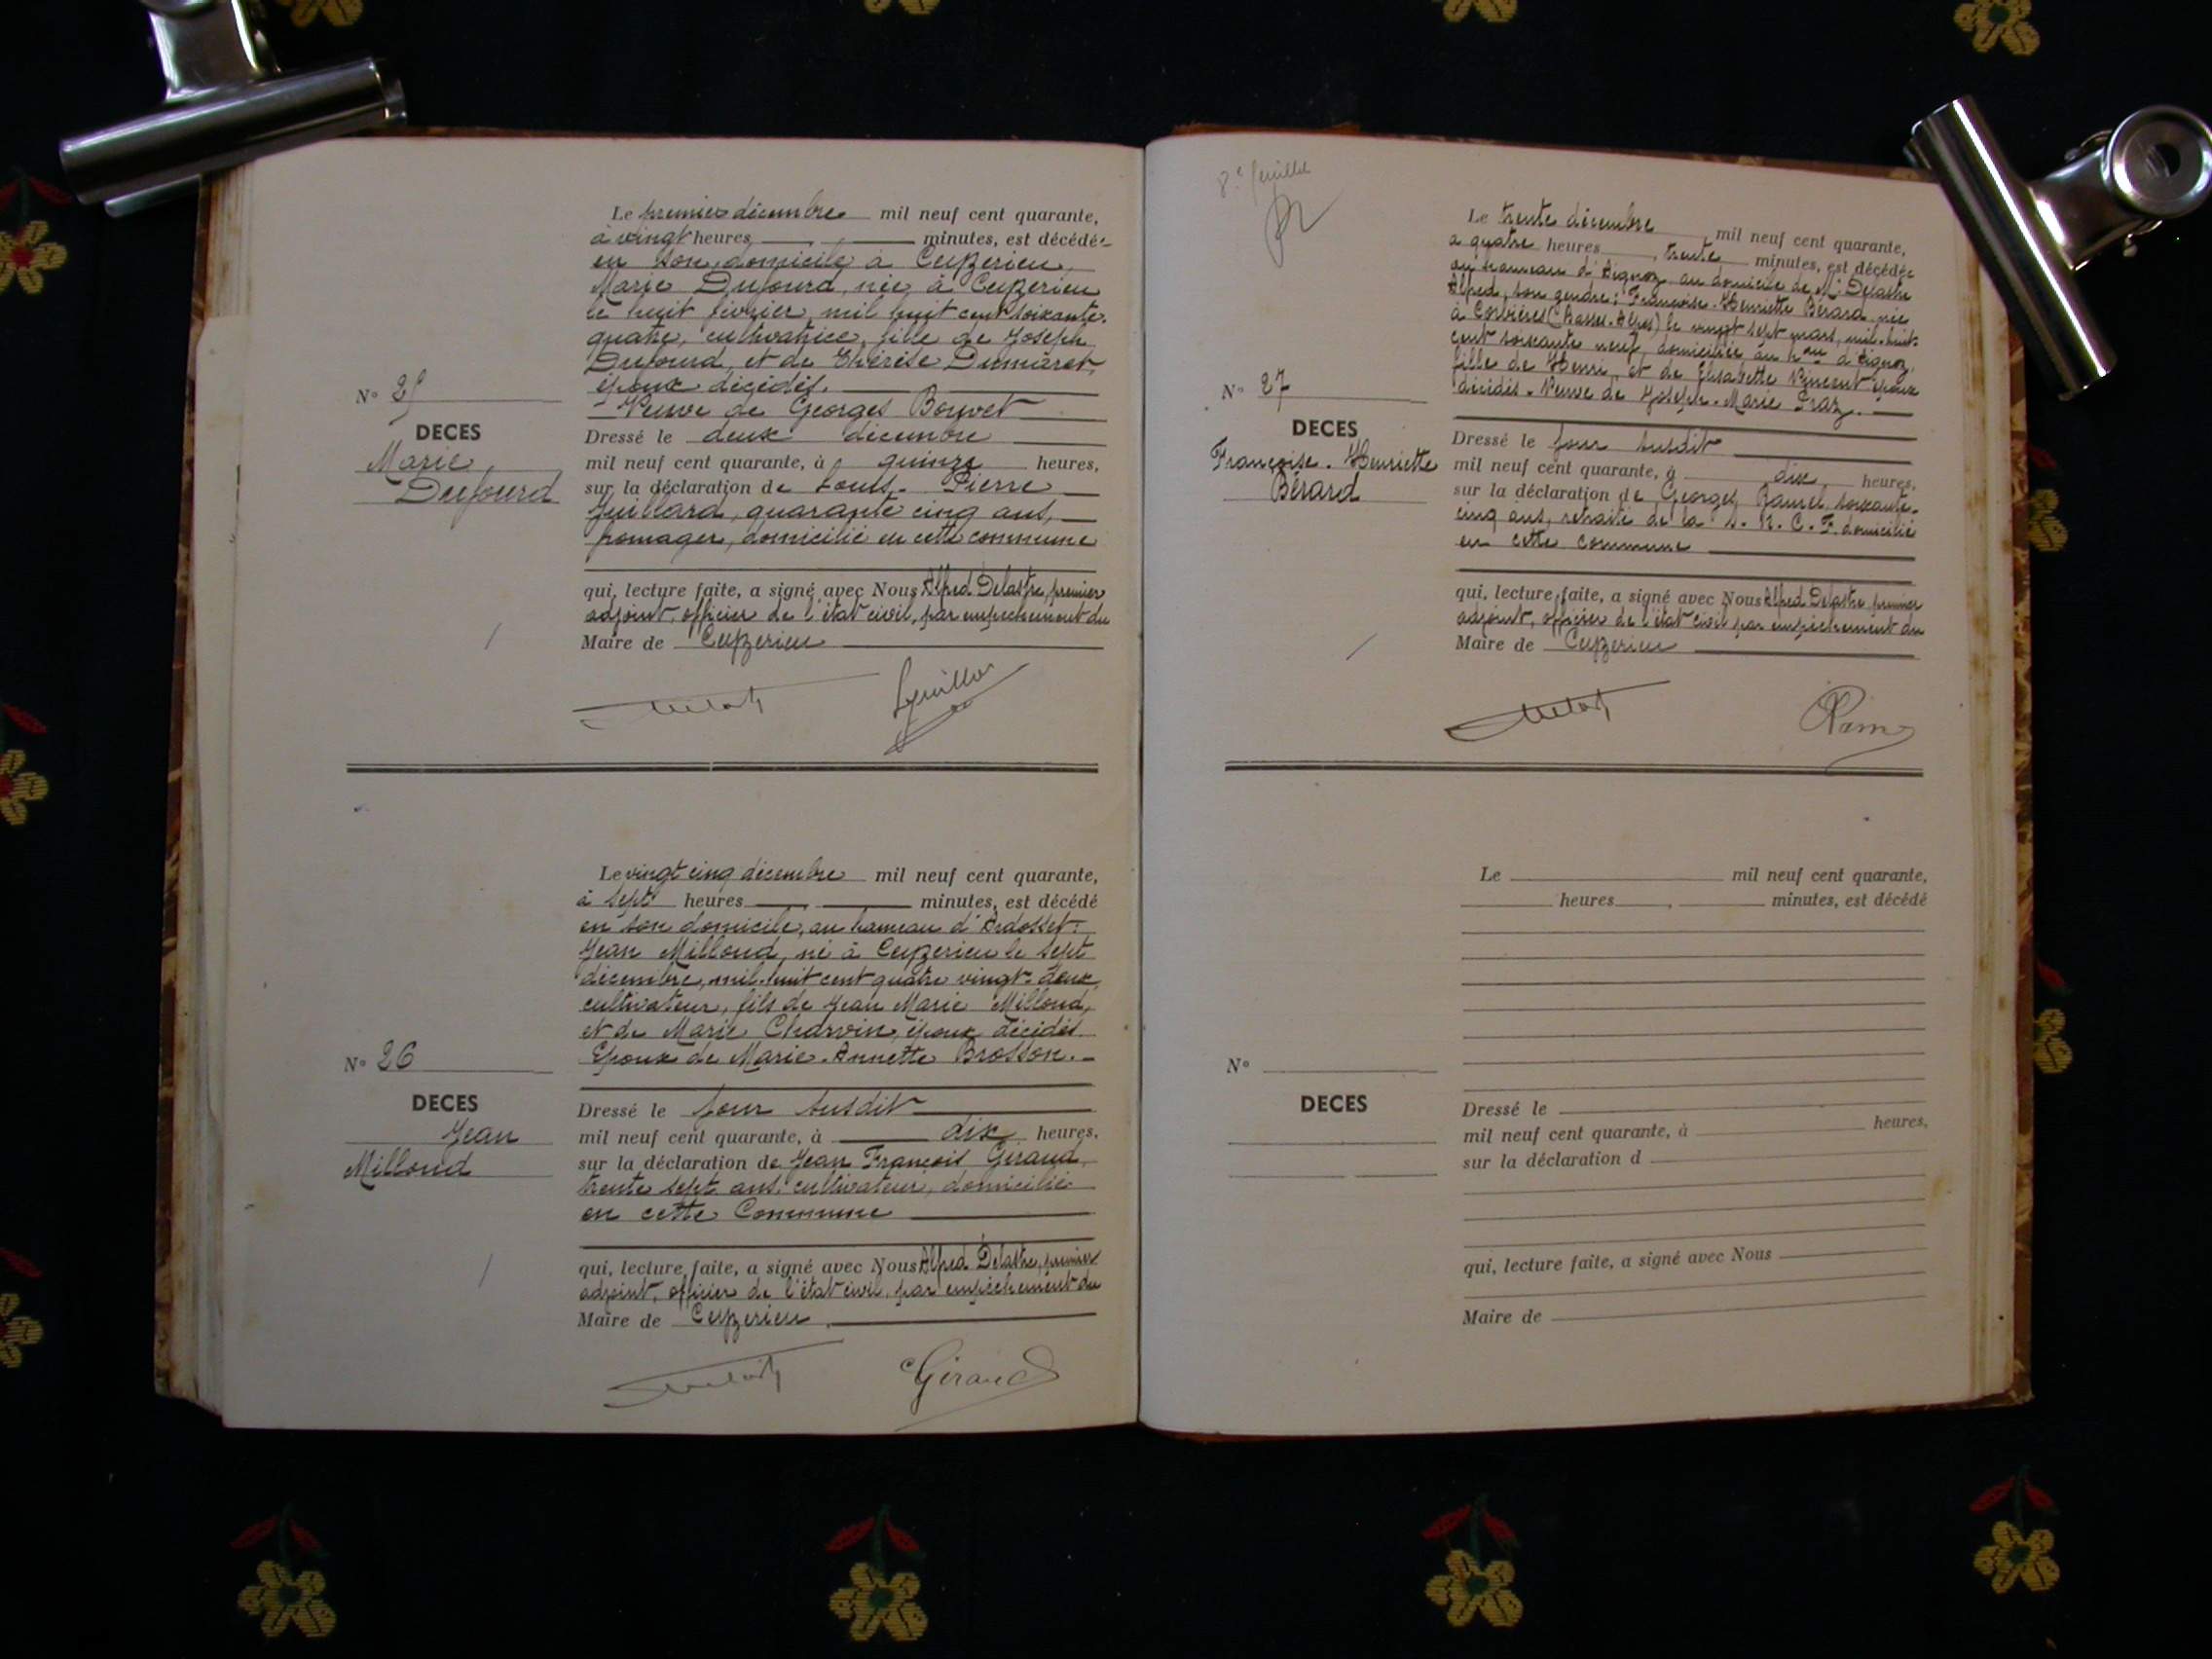 Le premier décembre mil neuf cent quarante,
à vingt heures, minutes, est décédée
en son domicile à Ceyzerieu,
Marie Dufourd, née à Ceyzerieu
le huit février, mil huit cent soixante-
quatre, cultivatrice, fille de Joseph
Dufourd, et de Thérèse Dumaret,
époux décédés.
Veuve de Georges Bouvet
N° 25
DECES
Marie
Dufourd
Dressé le deux décembre
mil neuf cent quarante, à quinze heures,
sur la déclaration de Louis-Pierre
Guillard, quarante cinq ans,
fromager, domicilié en cette commune
qui, lecture faite, a signé avec Nous Alfred Delastre, premier
adjoint, officier de l'état civil, par empêchement du
Maire de Ceyzerieu
Le vingt cinq décembre mil neuf cent quarante,
à sept heures, minutes, est décédé
en son domicile, au hameau d'Ardosset:
Jean Milloud, né à Ceyzerieu le sept
décembre, mil-huit cent quatre vingt-deux,
cultivateur, fils de Jean Marie Milloud,
et de Marie Charvin, époux décédés.
Epoux de Marie-Annette Brosson.
N° 26
DECES
Jean
Milloud
Dressé le jour susdit
mil neuf cent quarante, à dix heures,
sur la déclaration de Jean François Giraud,
trente sept ans, cultivateur, domicilié
en cette Commune
qui, lecture faite, a signé avec Nous Alfred Delastre, premier
adjoint, officier de l'état civil, par empêchement du
Maire de Ceyzerieu.
Giraud
8e feuillet
Le trente décembre mil neuf cent quarante,
à quatre heures, trente minutes, est décédée
au hameau d'Aignoz, au domicile de Mr Delastre
Alfred, son gendre: Françoise-Henriette Bérard née
à Corbières (Basses-Alpes) le vingt sept mars, mil-huit-
cent soixante neuf, domiciliée au heau d'Aignoz,
fille de Henri, et de Elisabette Vincent époux
décédés. Veuve de Joseph-Marie Praz.
N° 27
DECES
Françoise-Henriette
Bérard
Dressé le jour susdit
mil neuf cent quarante, à dix heures,
sur la déclaration de Georges soixante-
cinq ans, retraité de la S.N.C.F. domicilié
en cette commune
qui, lecture faite, a signé avec Nous Alfred Delastre premier
adjoint, officier de l'état civil par empêchement du
Maire de Ceyzerieu
Le mil neuf cent quarante,
heures, minutes, est décédé
N°
DECES
Dressé le
mil neuf cent quarante, à heures,
sur la déclaration d
qui, lecture faite, a signé avec Nous
Maire de